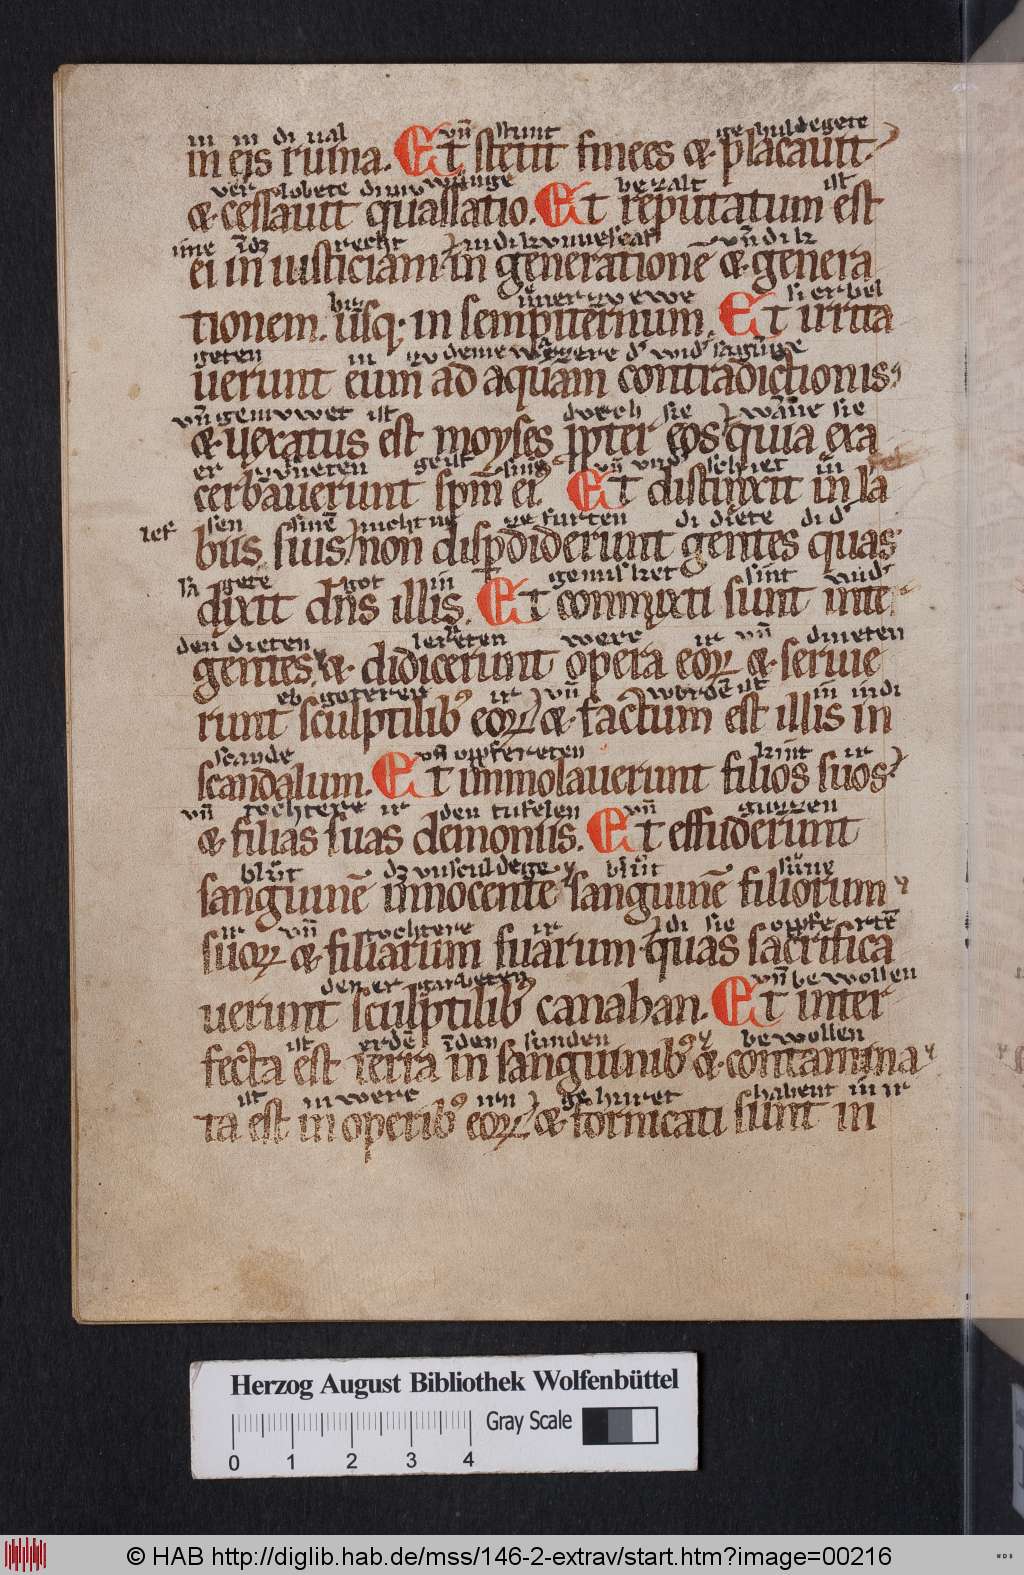 in in di ual vn̄ stunt ge huldegete
in eis ruina. Et stetit finees & placauit.
ver lobete diu
& cessauit quassatio. Et reputatum est
recht vn̄ di
ei in iusticiam. in generationē & genera
biz immer zv ewe si er bel
tionem. usq; in sempiternum. Et irrita
geten in zv deme
uerunt eum ad aquam contradictionis
vn̄ gemvwet ist dvrch sie wāne sie
& uexatus est moyses ppter eos quia exa
er geist vn̄ vnd in
cerbauerunt spm ei. Et distinxit in la
lef sen sine nicht ne
biis suis. non disperdiderunt gentes quas
sa gete got in gemisket sint vnd'
dixit dn̄s illis. Et conmixti sunt inte
den dieten lereten were ir vn̄ dineten
gentes. & didicerunt opera eoꝝ & seruie
eb goteren ir vn̄ wordē ist in indi
runt sculptilib' eoꝝ & factum est illis in
scande vn̄ oppfereten kint ir
scandalum. Et immolauerunt filios suos
vn̄ tochtere ir den tufelen vn̄ guzzen
& filias suas demoniis. Et effuderunt
blut dz vnsculdege blut sune
sanguinē innocente sanguinē filiorum
ir vn̄ tochtere ir di sie oppfe rtē
suoꝝ & filiarum suarum quas sacrifica
den er vn̄ bewollen
uerunt sculptilib' canahan. Et inter
ist erde īden sunden bewollen
fecta est terra in sanguinib' & contamina
ist in were irn gehuret habent in ir
ta est in operib' eoꝝ & fornicati sunt in
Herzog August Bibliothek Wolfenbüttel
Gray Scale
0 1 2 3 4
© HAB http://diglib.hab.de/mss/146-2-extrav/start.htm?image=00216